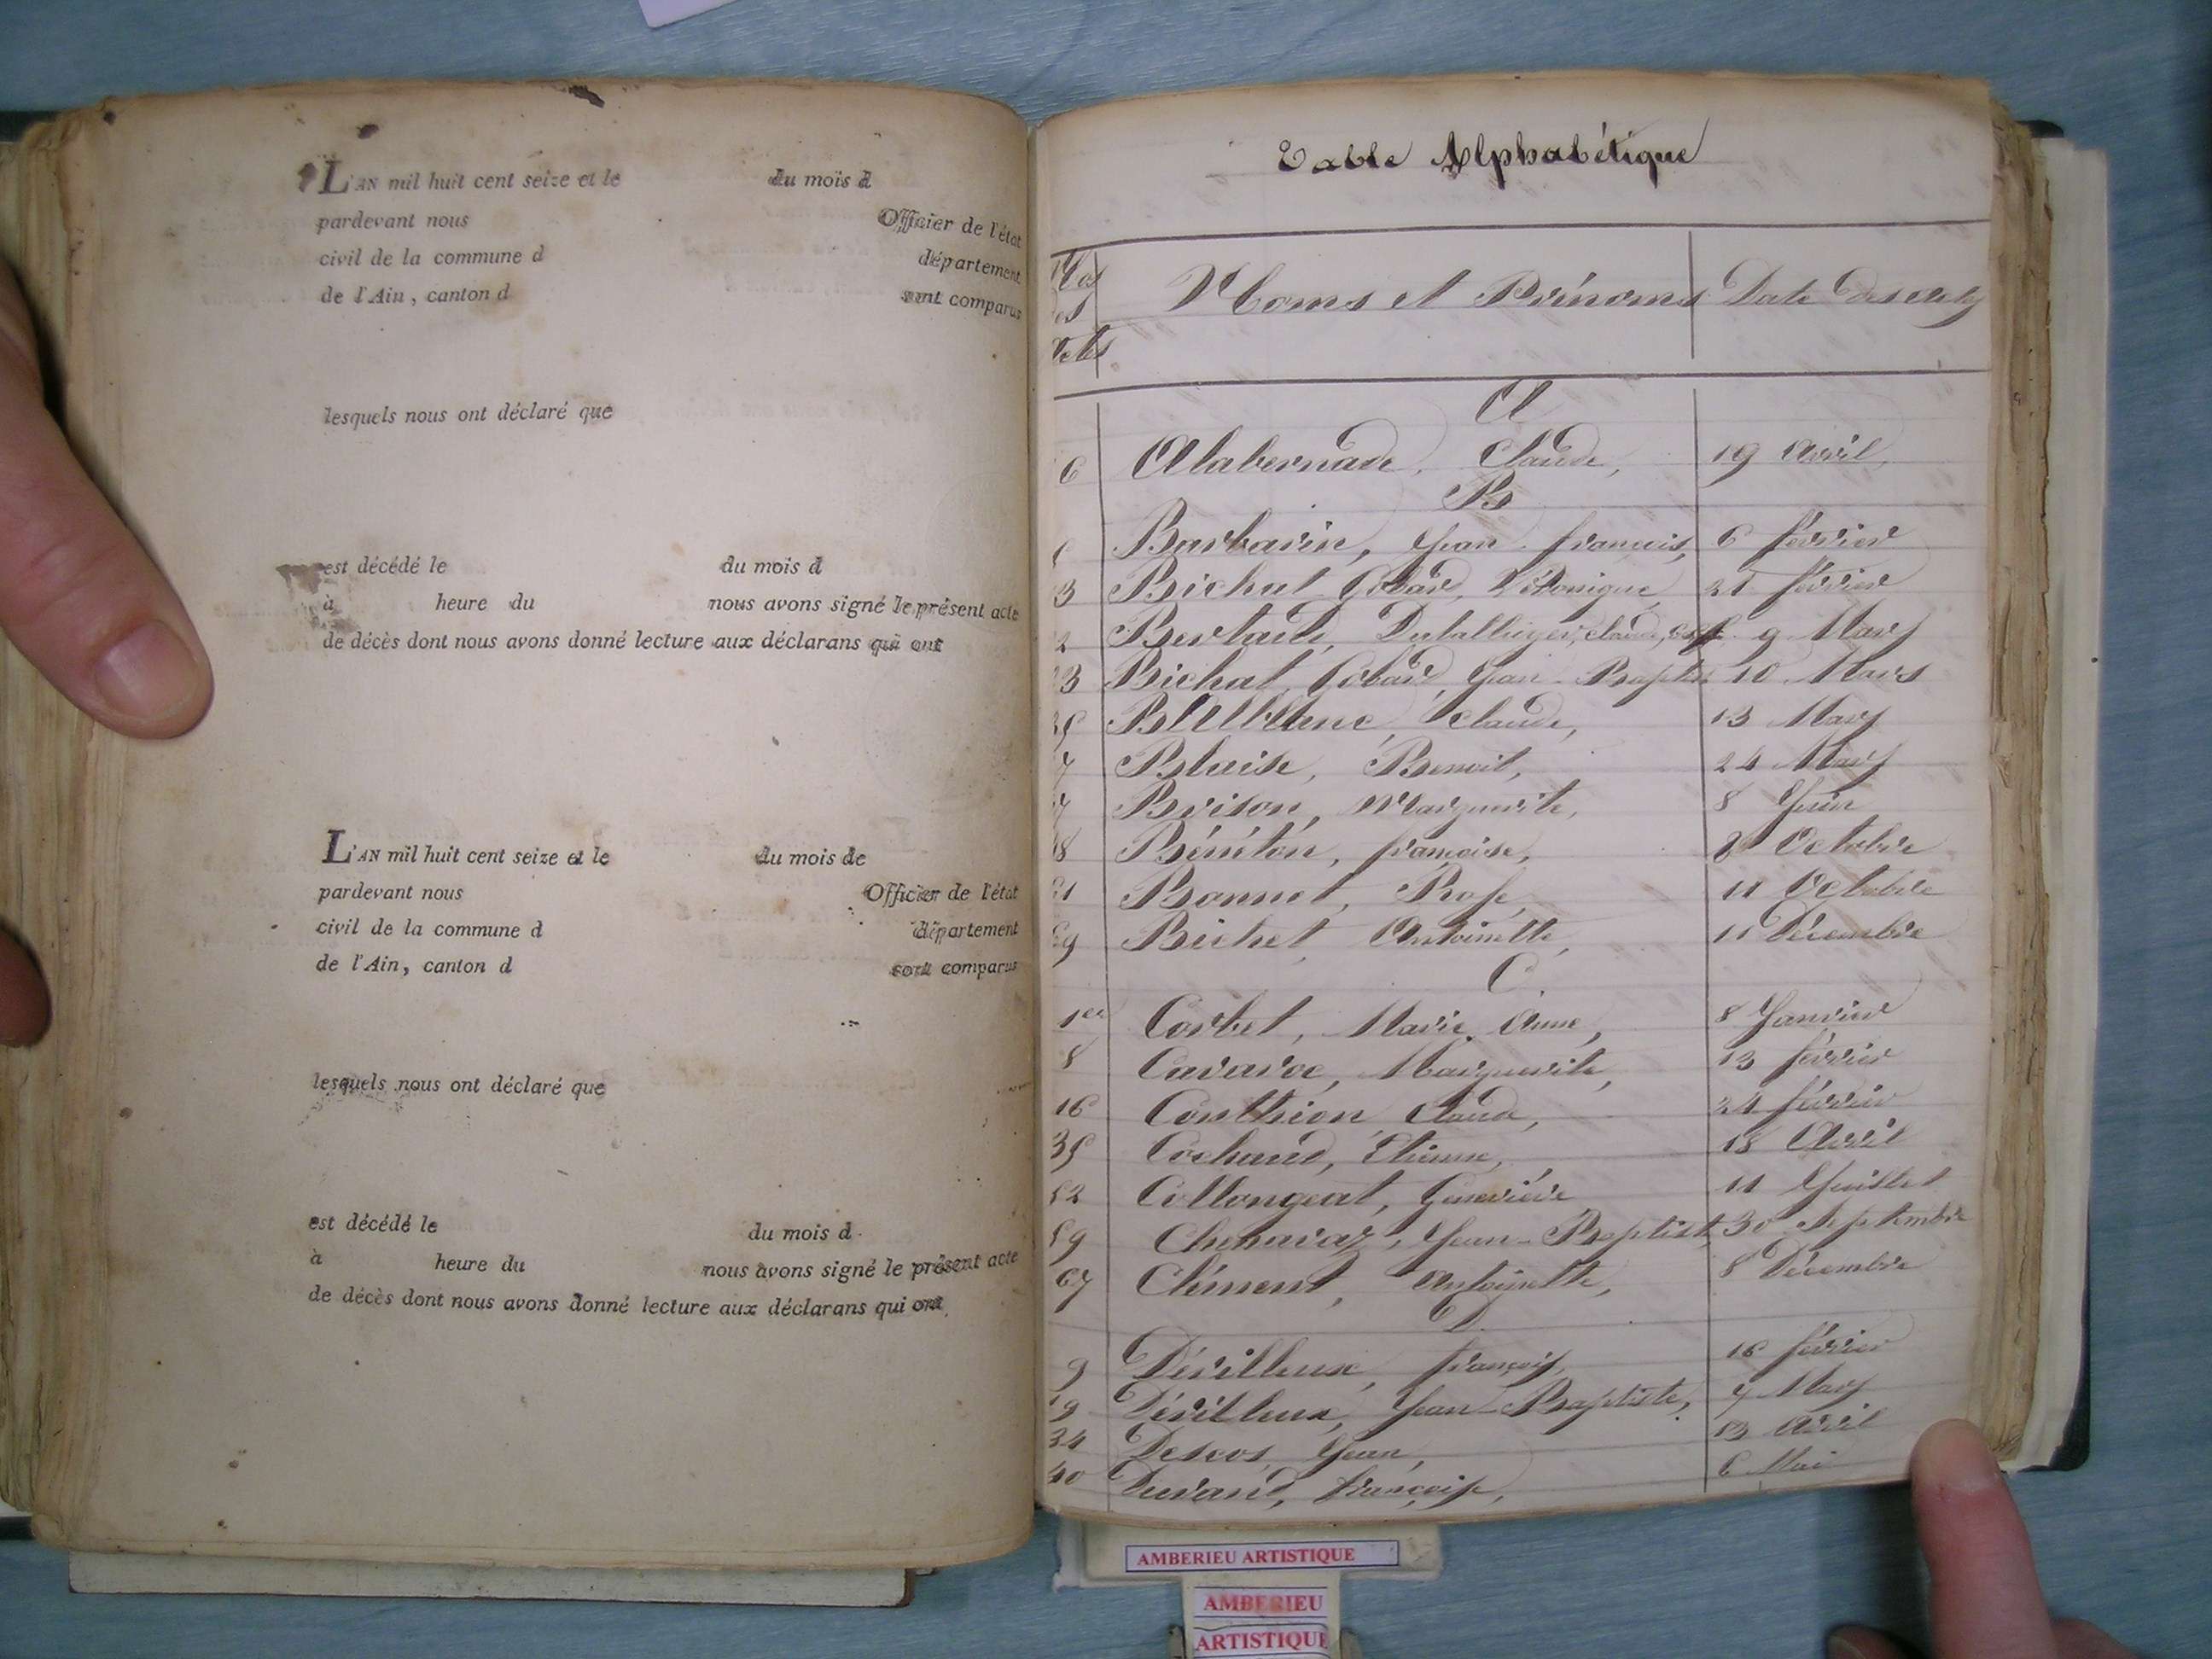 L'AN mil huit cent seize et le du mois d
pardevant nous Officier de l'état
civil de la commune d département
de l'Ain, canton d sont comparus
lesquels nous ont déclaré que
est décédé le du mois d
à heure du nous avons signé le présent acte
de décès dont nous avons donné lecture aux déclarans qui ont
L'AN mil huit cent seize et le du mois de
pardevant nous Officier de l'état
civil de la commune d département
de l'Ain, canton d sont comparus
lesquels nous ont déclaré que
est décédé le du mois d
à heure du nous avons signé le présent acte
de décès dont nous avons donné lecture aux déclarans qui ont
Table Alphabétique
Nos
Noms et Prénoms Date des actes
A
6 Alabernade, Claude, 19 Avril
B
Barbarin, Jean françois, 6 février
3 Bichat Gobard, Véronique, 21 février
2 Bertaud, claude, 9 Mars
3 Bichat Gobard, Jean-Baptiste 10 Mars
Claude, 13 Mars
7 Blaise, Benoit, 24 Mars
7 Brison, Marguerite, 8 Juin
8 Bénéton, françoise, 8 Octobre
1 Bonnet, Rose, 11 Octobre
9 Bichet, Antoinette, 11 Décembre
C.
1er Corbet, Marie Anne, 8 Janvier
8 Cavaroc, Marguerite, 13 février
16 Conthion Claude, 24 février
35 Cochand, Etienne, 18 Avril
52 Collongeat, Geneviève 11 Juillet
59 Chenavaz, Jean-Baptiste, 30 Septembre
67 Clément, Antoinette, 8 Décembre
D.
9 Dévilleux, françois, 16 février
19 Dévilleux, Jean-Baptiste, 7 Mars
34 Descos, Jean, 13 Avril
40 Durand, françoise, 6 Mai
AMBERIEU ARTISTIQUE
AMBERIEU
ARTISTIQUE